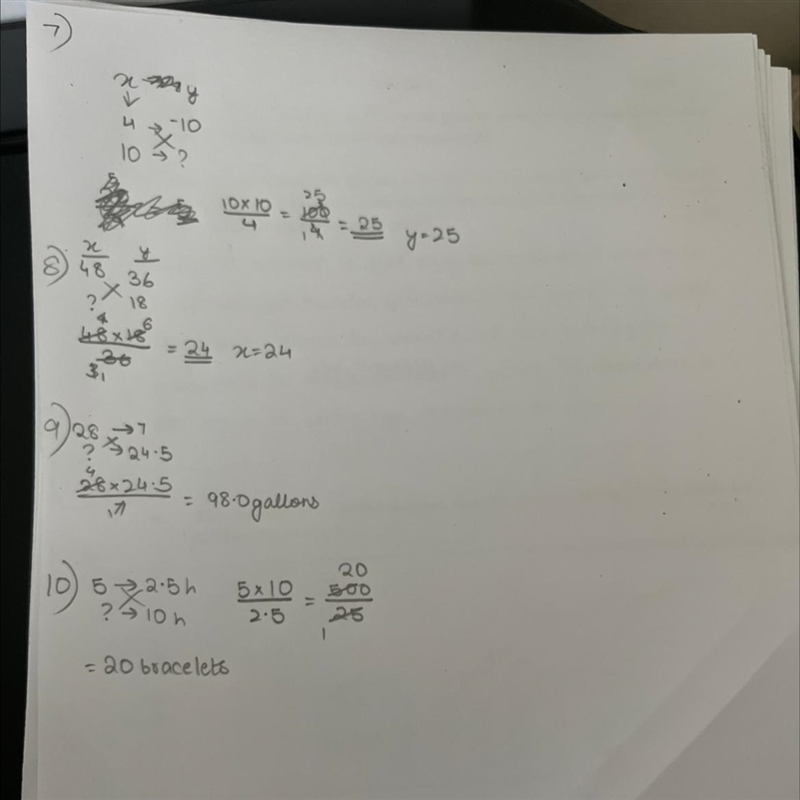 7)
x y
↓
4 → -10
10 → ?
10×10/4 = 100/4 = 25 y=25
8) x y
48 36
? 18
48×18/36 = 24 x=24
9) 28 → 7
? → 24.5
28×24.5/7 = 98.0 gallons
10) 5 → 2.5h 5×10/2.5 = 500/25 20 1
? → 10h
= 20 bracelets